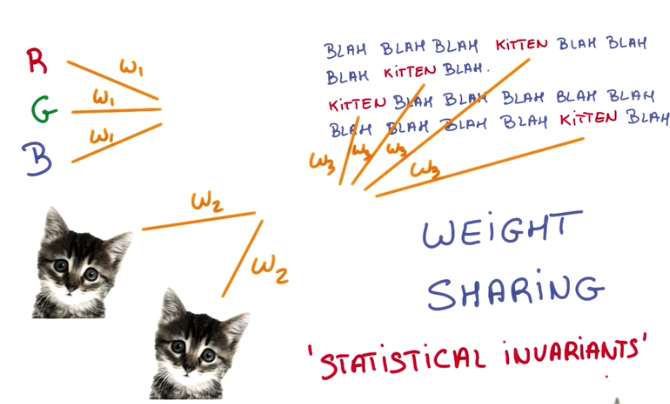 R
G
B
W1
W1
W1
BLAH BLAH BLAH KITTEN BLAH BLAH
BLAH KITTEN BLAH.
KITTEN BLAH BLAH BLAH BLAH BLAH
BLAH BLAH BLAH BLAH KITTEN BLAH
W3 W3 W3 W3
W2
W2
WEIGHT
SHARING
'STATISTICAL INVARIANTS'